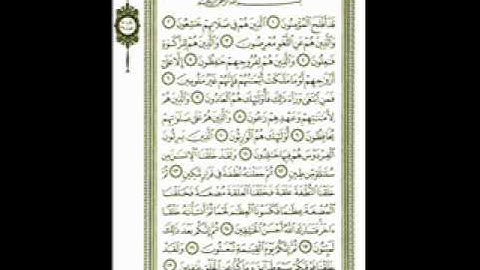 قَدْ أَفْلَحَ الْمُؤْمِنُونَ ١ الَّذِينَ هُمْ فِي صَلَاتِهِمْ خَٰشِعُونَ ٢
وَالَّذِينَ هُمْ عَنِ اللَّغْوِ مُعْرِضُونَ ٣ وَالَّذِينَ هُمْ لِلزَّكَوٰةِ
فَٰعِلُونَ ٤ وَالَّذِينَ هُمْ لِفُرُوجِهِمْ حَٰفِظُونَ ٥ إِلَّا عَلَىٰ
أَزْوَٰجِهِمْ أَوْ مَا مَلَكَتْ أَيْمَٰنُهُمْ فَإِنَّهُمْ غَيْرُ مَلُومِينَ ٦
فَمَنِ ابْتَغَىٰ وَرَاءَ ذَٰلِكَ فَأُولَٰئِكَ هُمُ الْعَادُونَ ٧ وَالَّذِينَ هُمْ
لِأَمَٰنَٰتِهِمْ وَعَهْدِهِمْ رَٰعُونَ ٨ وَالَّذِينَ هُمْ عَلَىٰ صَلَوَٰتِهِمْ
يُحَافِظُونَ ٩ أُولَٰئِكَ هُمُ الْوَٰرِثُونَ ١٠ الَّذِينَ يَرِثُونَ
الْفِرْدَوْسَ هُمْ فِيهَا خَٰلِدُونَ ١١ وَلَقَدْ خَلَقْنَا الْإِنسَٰنَ مِن
سُلَٰلَةٍ مِّن طِينٍ ١٢ ثُمَّ جَعَلْنَٰهُ نُطْفَةً فِي قَرَارٍ مَّكِينٍ ١٣ ثُمَّ
خَلَقْنَا النُّطْفَةَ عَلَقَةً فَخَلَقْنَا الْعَلَقَةَ مُضْغَةً فَخَلَقْنَا
الْمُضْغَةَ عِظَٰمًا فَكَسَوْنَا الْعِظَٰمَ لَحْمًا ثُمَّ أَنشَأْنَٰهُ خَلْقًا
ءَاخَرَ فَتَبَارَكَ اللَّهُ أَحْسَنُ الْخَٰلِقِينَ ١٤ ثُمَّ إِنَّكُم بَعْدَ ذَٰلِكَ
لَمَيِّتُونَ ١٥ ثُمَّ إِنَّكُمْ يَوْمَ الْقِيَٰمَةِ تُبْعَثُونَ ١٦ وَلَقَدْ
خَلَقْنَا فَوْقَكُمْ سَبْعَ طَرَائِقَ وَمَا كُنَّا عَنِ الْخَلْقِ غَٰفِلِينَ ١٧